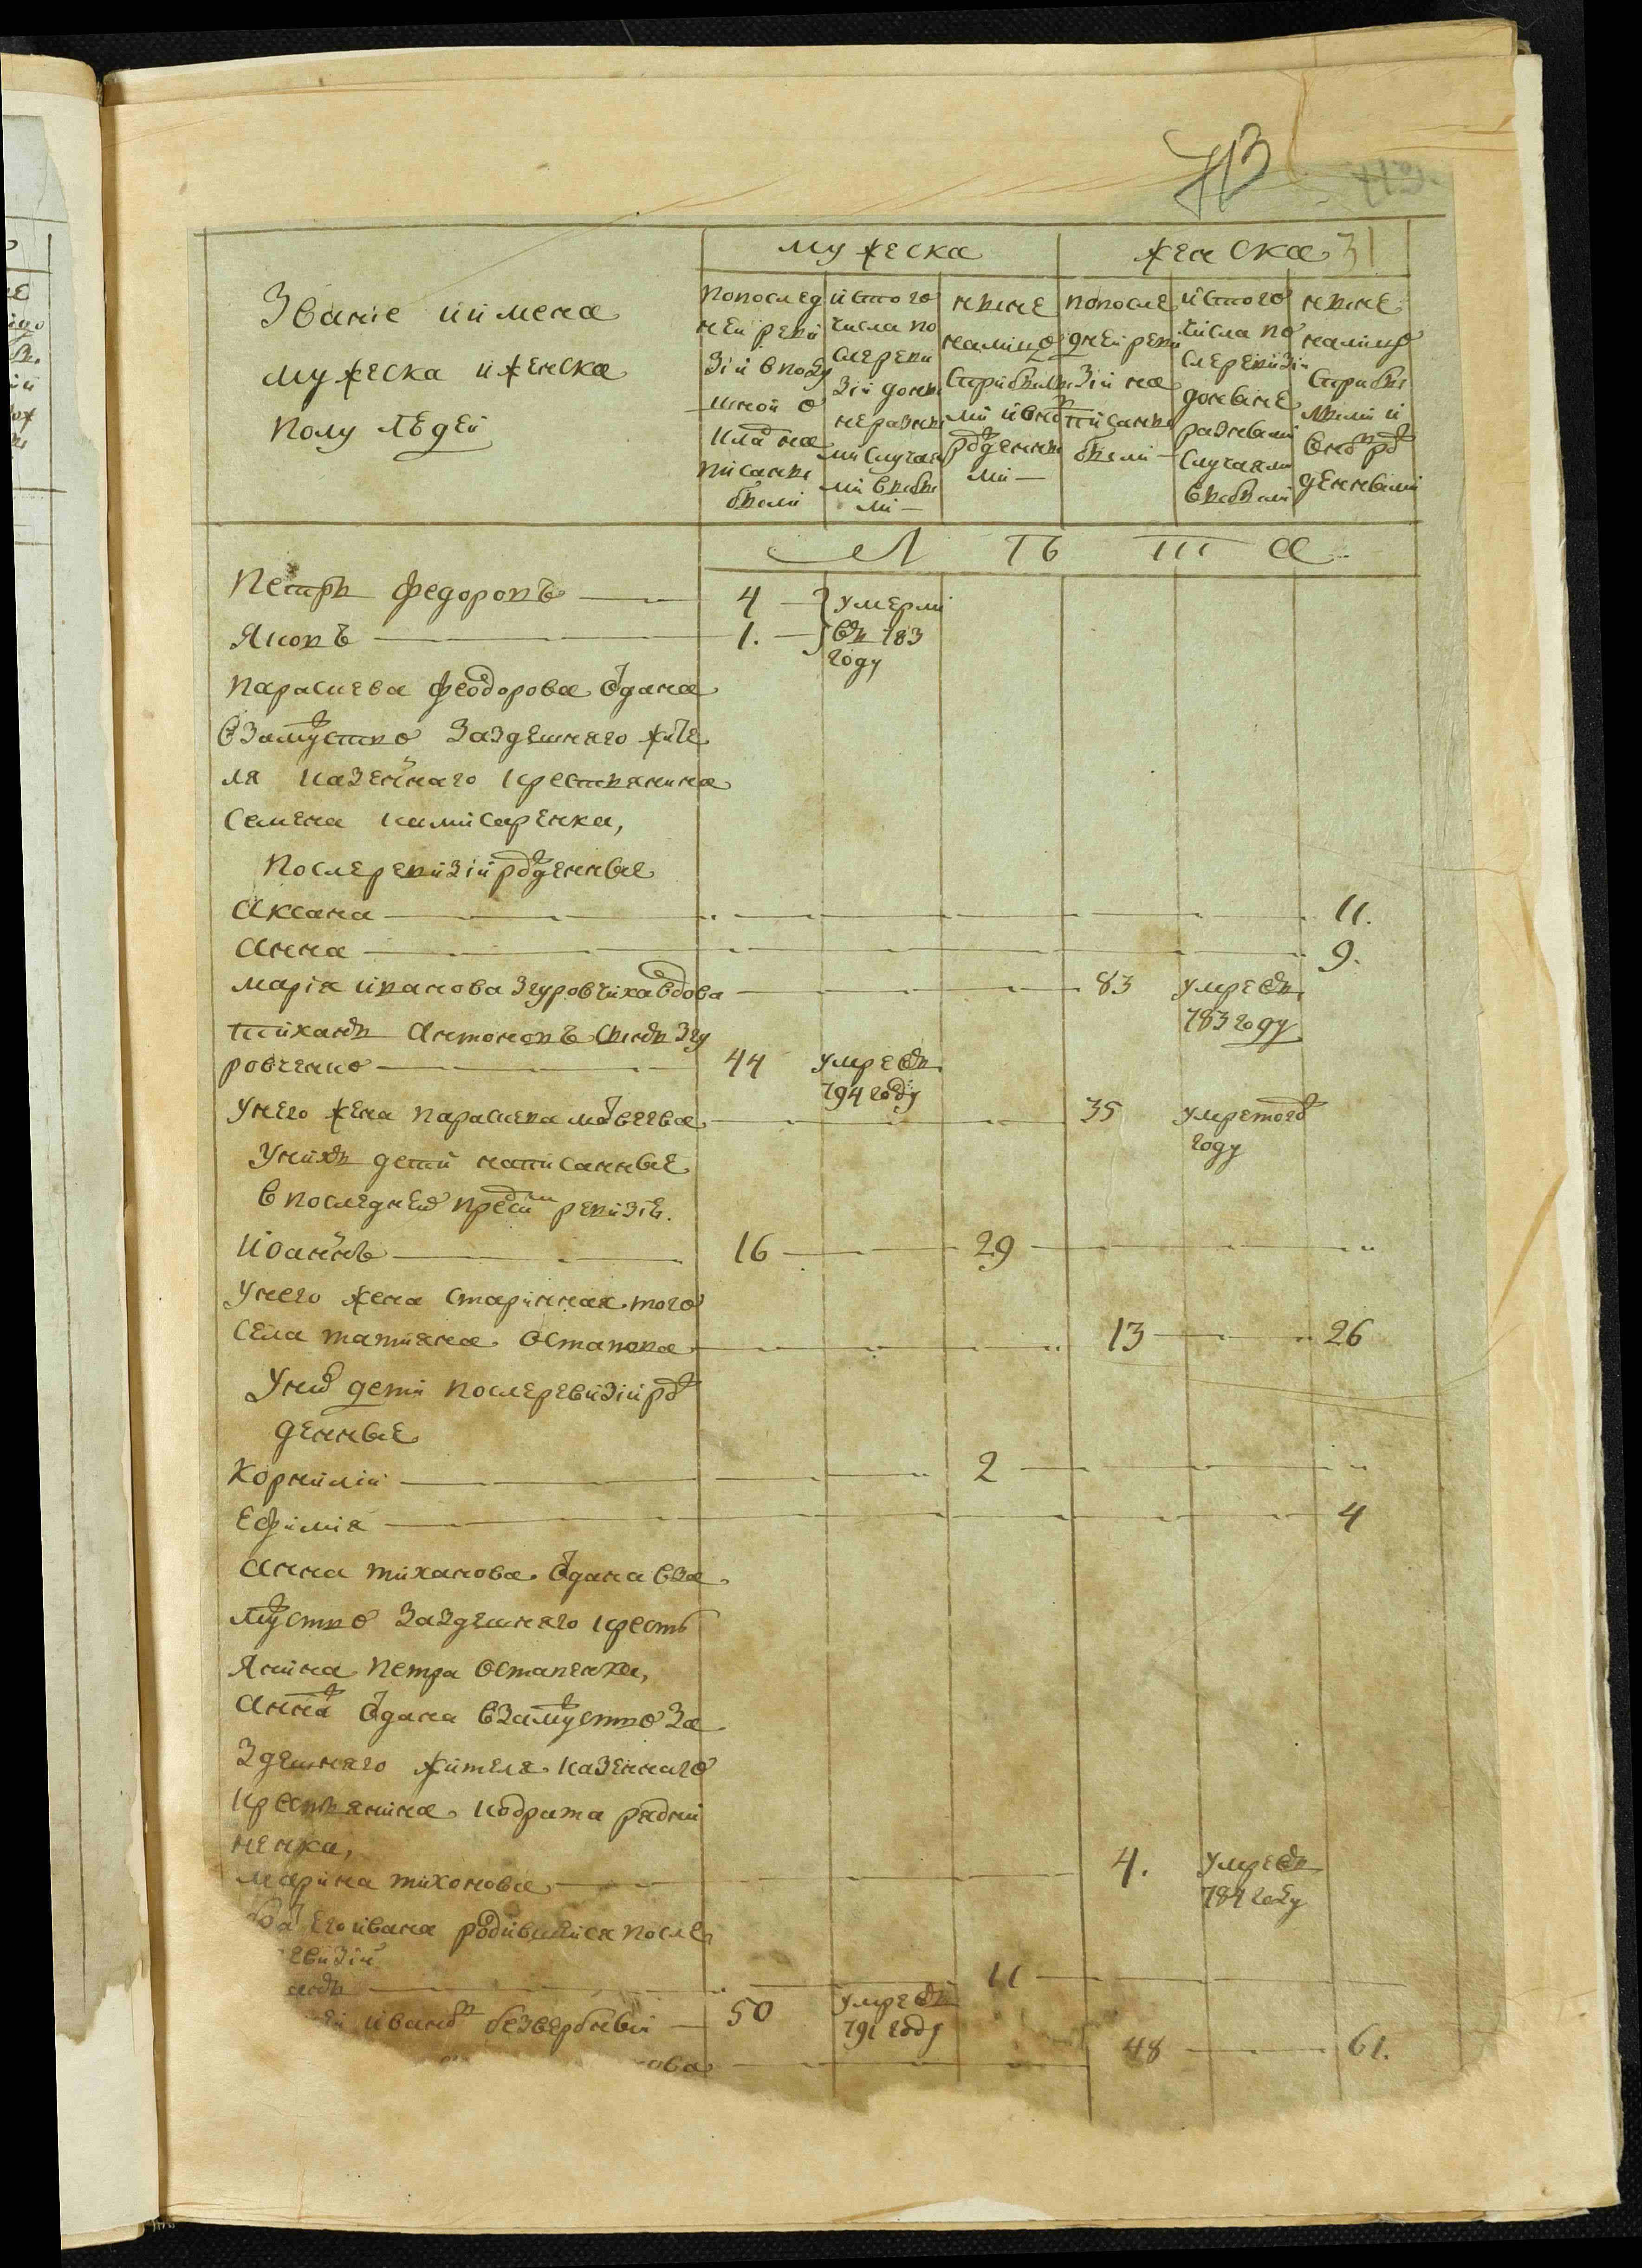 713
31
мужеска
женска
Званїе иимена
мужеска иженска
полу людей
попослед
ней реви
зїи вподу
шной о
кла на
писаны
были
истого
числа по
слереви
зїи доны
неразны
ми случая
ми выбы
ли —
ныне
налицо
сприбыл
ми ивно
рожденны
ми —
попосле
дней реви
зїи на
писаны
были —
истого
числа по
слеревизї
доныне
разными
случаями
выбыли
ныне
налицо
стрибы
лыми и
вно рож
денными
Л ѣ т а
Петръ федоровъ — 4 — умерли
Яковъ — 1. — въ 783
году
парасиева феодорова ѿдана
взамужство заздешняго жите
ля казенного крестьянина
Семена камисаренка,
послеревизїи рожденные
Аксана — 11.
Анна — 9.
марїя иванова згуровчиха вдова — 83 умре въ
783 году
тиханъ Антоновъ сынъ згу
ровченко — 44 умре въ
794 году
унего жена парасиева матвеева — 35 умре того
году
унихъ дети написанные
впоследней пред сим ревизїе.
Иоаннъ — 16 — 29 —
унего жена старинная того
села татияна остапова — 13 — 26
уних дети послеревизїи рож
денные
Корнилїи — 2 —
Ефимїя — 4
Анна тиханова ѿдана вза
мужство заздешняго кресть
янина петра остапенка,
Анна ж ѿдана взамужство за
здешняго жителя казенного
крестьянина кодрата рядни
ненка,
марина тихонова — 4. умре въ
784 году
его ивана родившийся после
евизїи
— 11 —
иванъ безвербный — 50 умре въ
791 году
ова — 48 — 61.